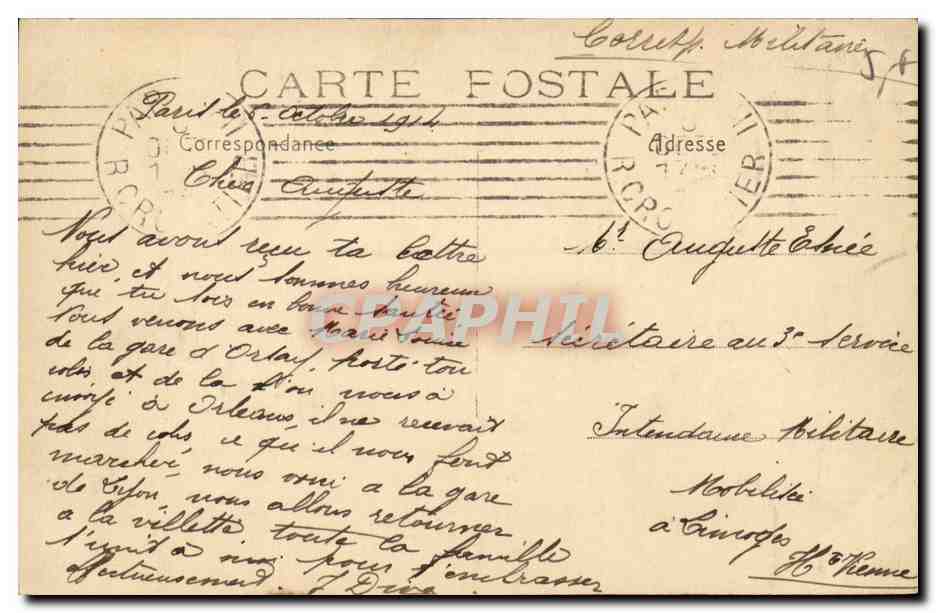 Corresp. Militaire
CARTE POSTALE
Paris le 6 Octobre 1914
Correspondance
Adresse
Cher Auguste
Nous avons reçu ta lettre
hier, et nous sommes heureux
que tu sois en bonne santé
nous venons avec Marie Louise
de la gare d'Orsay, porté ton
colis et de la l'on nous à
envoyé à Orleans, il ne recevait
pas de colis, ce qui il nous font
marcher, nous voici a la gare
de Lyon, nous allons retourner
a la villette toute la famille
s'unit à moi pour t'embrasser
affectueusement J
Mr Auguste
Sécrétaire au 3e Service
Intendance Militaire
Mobilisé
à Limoges
Hte Vienne
CPAPHIL